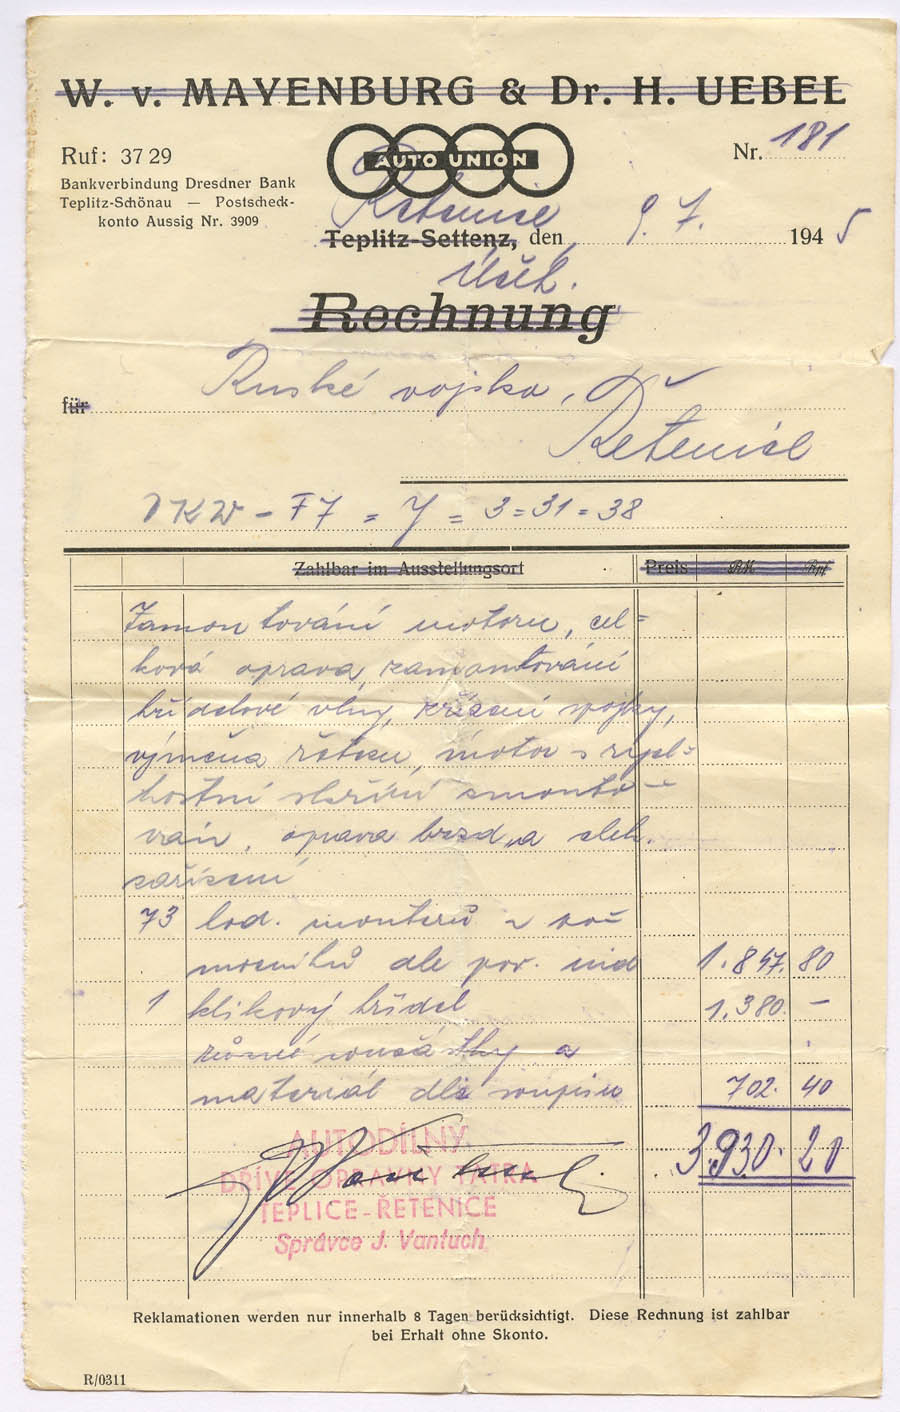 W. v. MAYENBURG & Dr. H. UEBEL
AUTO UNION
Ruf: 37 29
Nr. 181
Bankverbindung Dresdner Bank
Teplitz-Schönau — Postscheck-
konto Aussig Nr. 3909
Řetenice
Teplitz-Settenz, den 9. 7. 1945
Účet.
Rechnung
für Ruské vojsko,
Řetenice
DKW - F7 = 3 = 31 = 38
Zahlbar im Ausstellungsort Preis RM Rpf
Zamontování motoru, cel=
ková oprava, zamontování
hřídelové vlny, zřízení spojky,
výměna řetezu, motor s rychl=
hostní skříní smonto-
ván, oprava brzd, a elek.
zařízení
73 hod. monterů
dle 1.847. 80
1 klikový hřídel 1.380. —
různé součástky a
materiál dle soupisu 702. 40
3.930. 20
AUTODÍLNY
DŘÍVE OPRAVNY TATRA
TEPLICE-ŘETENICE
Správce J. Vantuch
Reklamationen werden nur innerhalb 8 Tagen berücksichtigt. Diese Rechnung ist zahlbar
bei Erhalt ohne Skonto.
R/0311